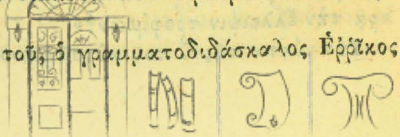 τοῦ, ὁ γραμματοδιδάσκαλος Ἑῤῥῖκος